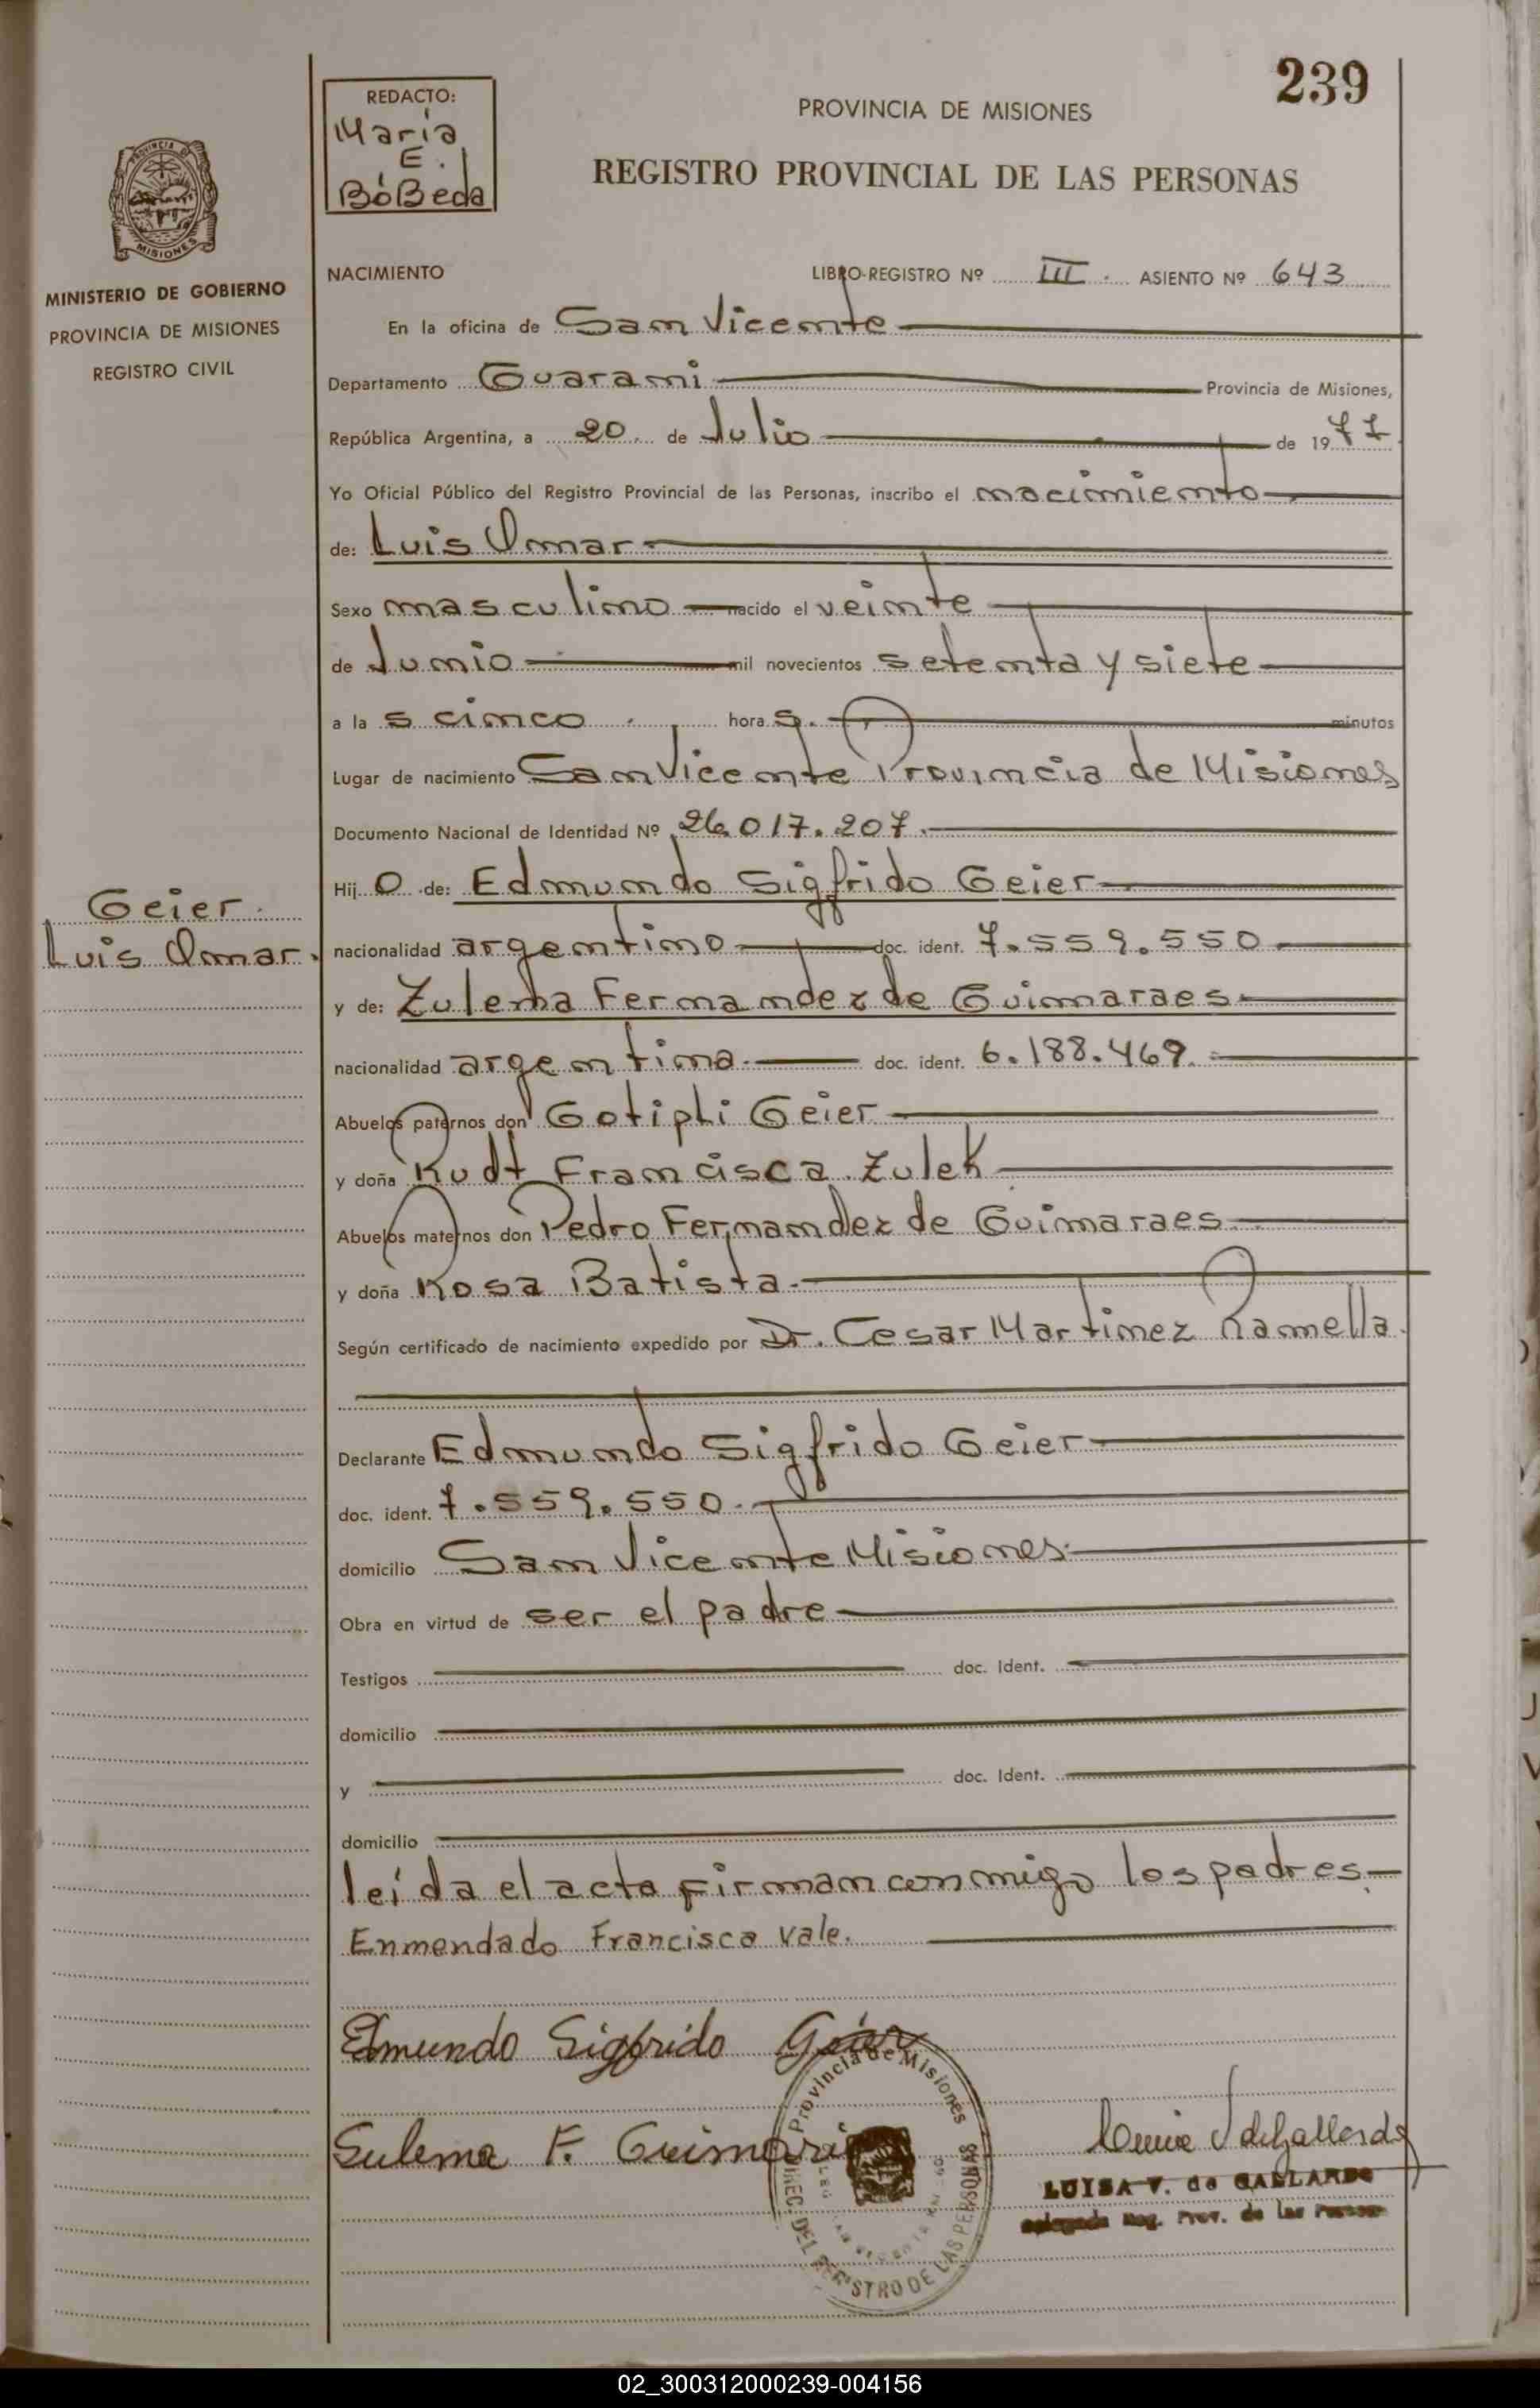 239
REDACTO:
María
E.
BóBeda
PROVINCIA DE MISIONES
REGISTRO PROVINCIAL DE LAS PERSONAS
PROVINCIA DE
MISIONES
MINISTERIO DE GOBIERNO
PROVINCIA DE MISIONES
REGISTRO CIVIL
NACIMIENTO LIBRO-REGISTRO Nº III. ASIENTO Nº 643
En la oficina de San Vicente
Departamento Guarani Provincia de Misiones,
República Argentina, a 20. de Julio de 1977
Yo Oficial Público del Registro Provincial de las Personas, inscribo el nacimiento
de: Luis Omar
Sexo masculino nacido el veinte
de Junio mil novecientos setenta y siete
a la s cinco hora s. minutos
Lugar de nacimiento San Vicente Provincia de Misiones
Documento Nacional de Identidad Nº 26.017.207.
Hij o de: Edmundo Sigfrido Geier
Geier.
Luis Omar.
nacionalidad argentino doc. ident. 7.559.550
y de: Zulema Fernandez de Guimaraes
nacionalidad argentina. doc. ident. 6.188.469.
Abuelos paternos don Gotipli Geier
y doña Rudt Francisca Zulek
Abuelos maternos don Pedro Fernandez de Guimaraes
y doña Rosa Batista.
Según certificado de nacimiento expedido por Dr. Cesar Martinez Ramella.
Declarante Edmundo Sigfrido Geier
doc. ident. 7.559.550.
domicilio San Vicente Misiones
Obra en virtud de ser el padre
Testigos doc. Ident.
domicilio
y doc. Ident.
domicilio
leída el acta firman conmigo los padres.
Enmendado Francisca Vale.
Edmundo Sigfrido Geier
Provincia de Misiones
DIREC. DEL REGISTRO DE LAS PERSONAS
Sulema F. Guimarai
LUISA V. de GALLARDO
Delegada Reg. Prov. de las Personas
02_300312000239-004156